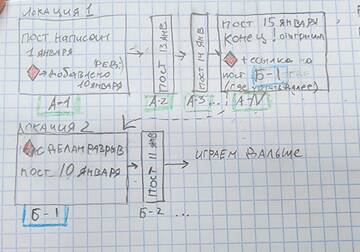 ЛОКАЦИЯ 1
ПОСТ НАПИСАН
1 ЯНВАРЯ
РЕД:
→ ДОБАВЛЕНО
10 ЯНВАРЯ
А-1
ПОСТ 13 ЯНВ
А-2
ПОСТ 14 ЯНВ
А-3
ПОСТ 15 ЯНВАРЯ
КОНЕЦ! ОТЫГРАЛИ
+ ССЫЛКА НА
ПОСТ Б-1
(ГДЕ ЧИТАТЬ ДАЛЕЕ)
А-IV
ЛОКАЦИЯ 2
СДЕЛАН РАЗРЫВ
ПОСТ 10 ЯНВАРЯ
Б-1
ПОСТ 11 ЯНВ
Б-2 ...
ИГРАЕМ ДАЛЬШЕ